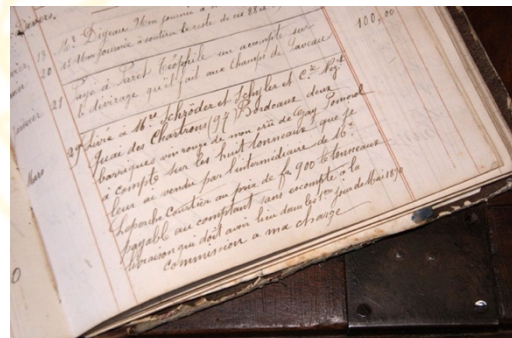 Mr Digeau 26m journée à
20 15 1/2m journée à soutirer le reste de ces 88
21 Payé à Paret Théophile un acompte sur 100,00
le divisage qu'il fait aux champs de Gaveau
29 Livré à Mrs Schröder et Schyler et Cie Negt
quai des Chartrons (97) Bordeaux deux
barriques vin rouge de mon crû de Gay Pomerol
à compte sur les huit tonneaux que je
leur ai vendu par l'intermédiaire de Mr
Laporche Courtier au prix de fr 900 le tonneaux
payable au comptant sans escompte à la
livraison qui doit avoir lieu dans les 1ers jours de Mai 1870
commission à ma charge
Mars